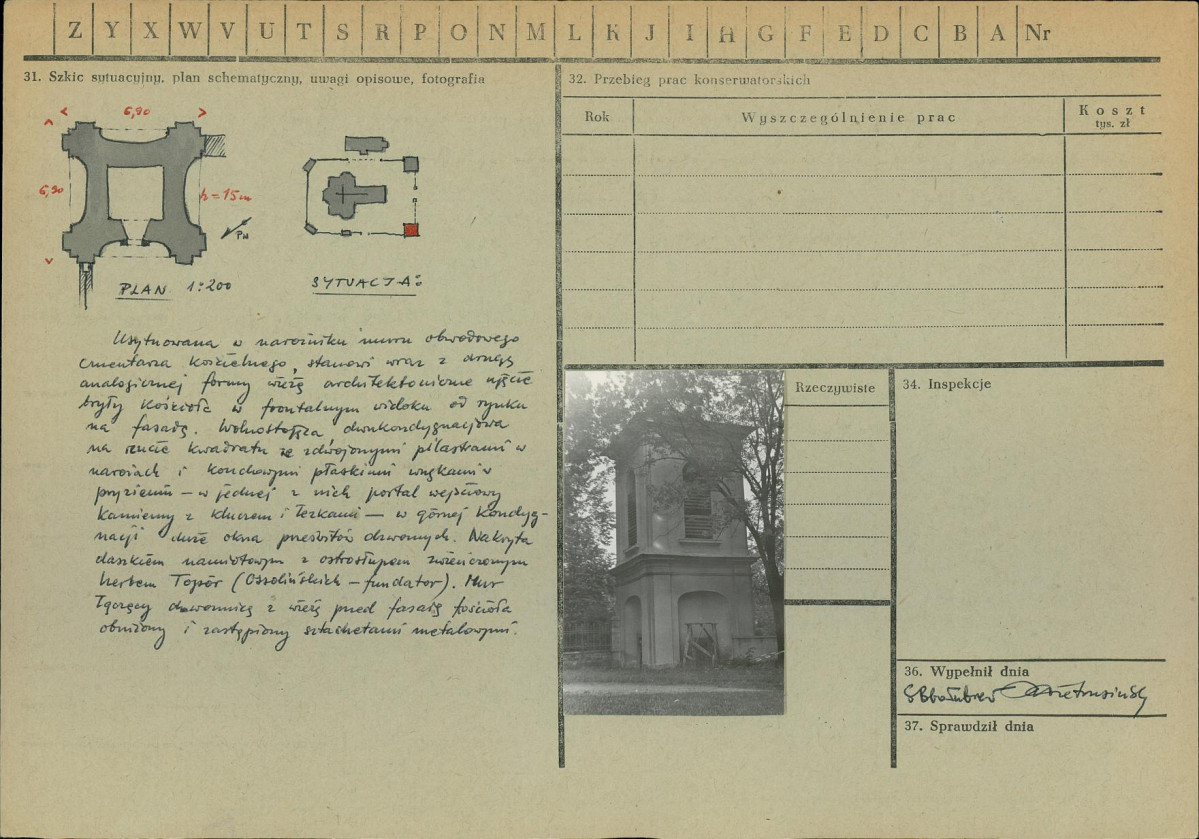 Z Y X W V U T S R P O N M L K J I H G F E D C B A Nr
31. Szkic sytuacyjny, plan schematyczny, uwagi opisowe, fotografia
6,90
6,90
h=15m
PN
PLAN 1:200
SYTUACJA:
Usytuowana w narożniku muru obwodowego
cmentarza kościelnego, stanowi wraz z drugą
analogicznej formy wieżą architektoniczne ujęcie
bryły kościoła w frontalnym widoku od rynku
na fasadę. Wolnostojąca dwukondygnacyjowa
na rzucie kwadratu ze zdwojonymi pilastrami w
narożach i konchowymi płaskimi wnękami w
przyziemiu – w jednej z nich portal wejściowy
kamienny z kluczem i łezkami – w górnej kondyg-
nacji duże okna przeźrocz dzwonnych. Nakryta
daszkiem namiotowym z ostrosłupem zwieńczonym
herbem Topór (Ossolińskich – fundator). Mur
łączący dzwonnicę z wieżą przed fasadą kościoła
obniżony i zastąpiony sztachetami metalowymi.
32. Przebieg prac konserwatorskich
Rok
Wyszczególnienie prac
Koszt
tys. zł
Rzeczywiste
34. Inspekcje
36. Wypełnił dnia
37. Sprawdził dnia